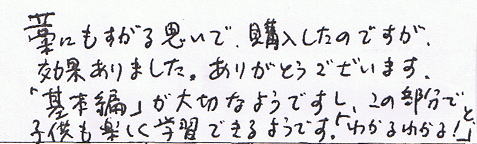 藁にもすがる思いで、購入したのですが、
効果ありました。ありがとうございます。
「基本編」が大切なようですし、この部分で
子供も楽しく学習できるようです。「わかるわかる!」と